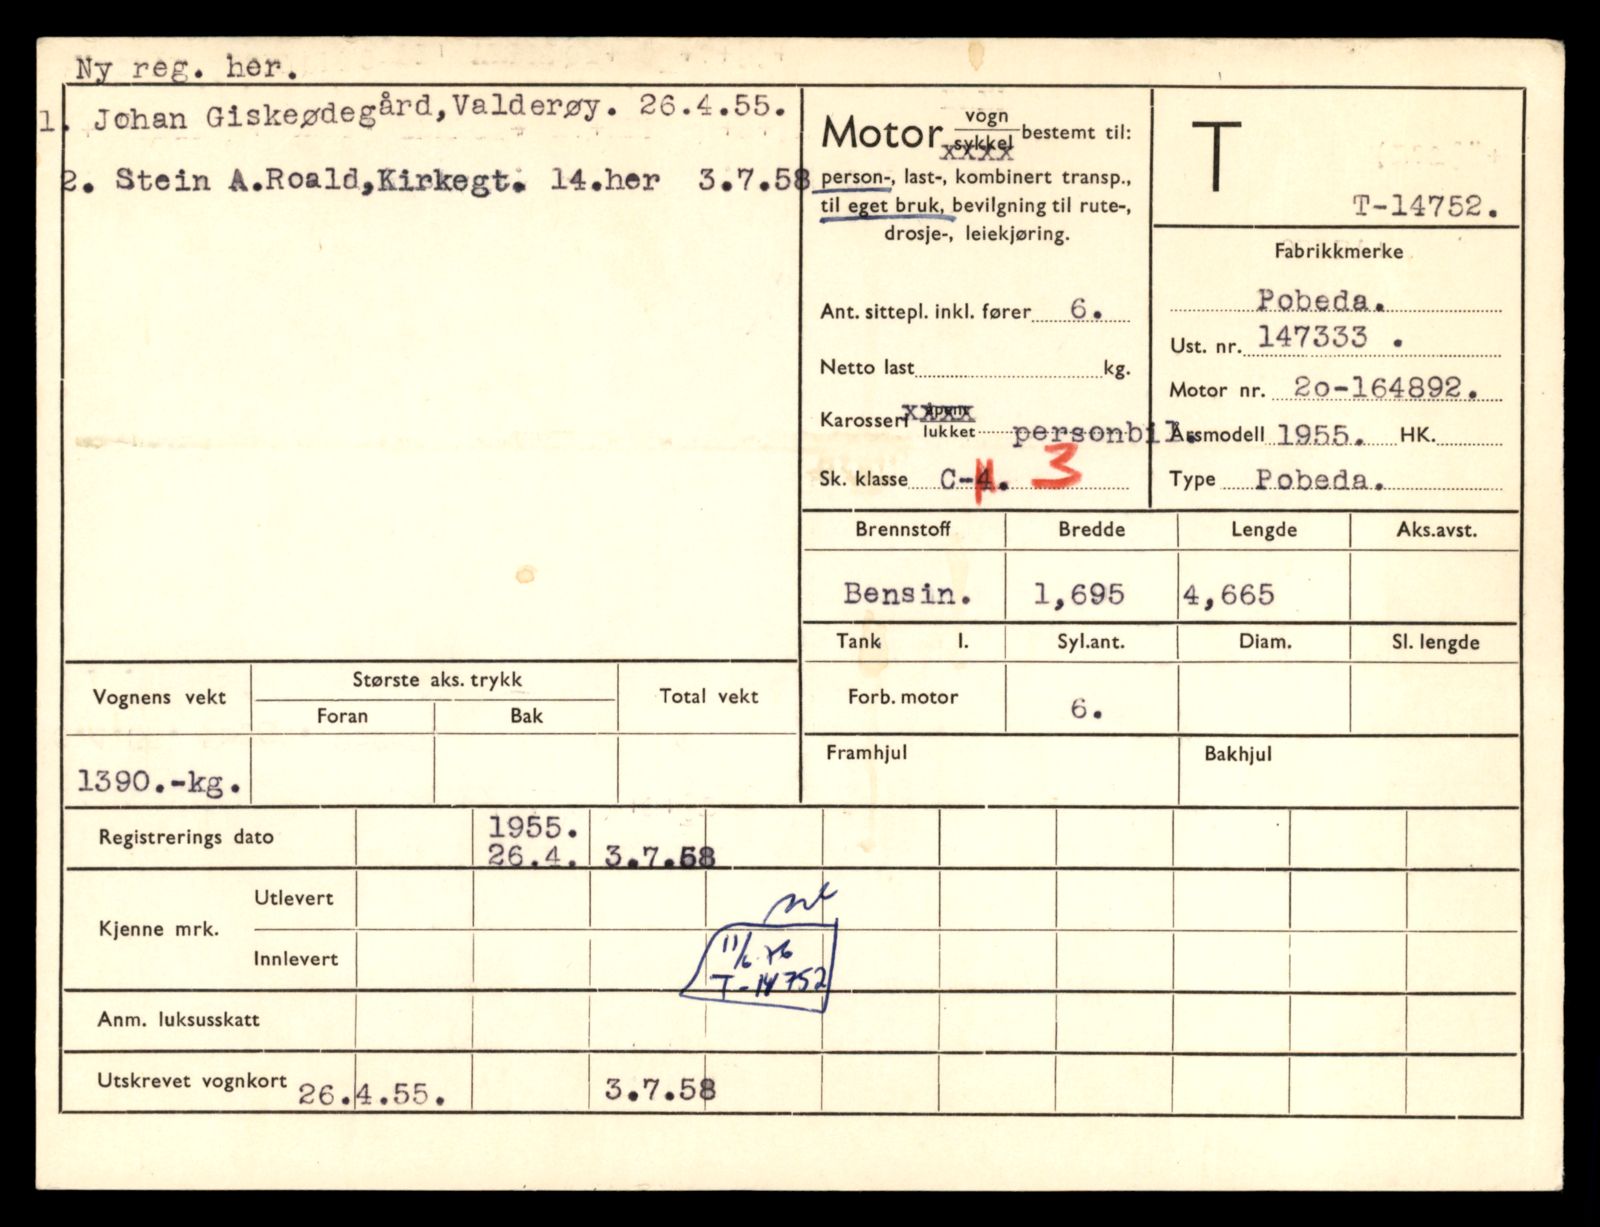 Ny reg. her.
1. Johan Giskeødegård, Valderøy. 26.4.55.
2. Stein A.Roald, Kirkegt. 14.her 3.7.58
Motor vogn
sykkel
xxxx
bestemt til:
person-, last-, kombinert transp.,
til eget bruk, bevilgning til rute-,
drosje-, leiekjøring.
Ant. sittepl. inkl. fører 6.
Netto last kg.
Karosseri åpent
xxxx
lukket personbil.
Sk. klasse C-4. 3
T
T-14752.
Fabrikkmerke
Pobeda.
Ust. nr. 147333 .
Motor nr. 2o-164892.
Årsmodell 1955. HK.
Type Pobeda.
Brennstoff Bredde Lengde Aks.avst.
Bensin. 1,695 4,665
Tank l. Syl.ant. Diam. Sl. lengde
Forb. motor 6.
Framhjul Bakhjul
Vognens vekt Største aks. trykk Total vekt
Foran Bak
1390.-kg.
Registrerings dato 1955.
26.4. 3.7.58
Kjenne mrk. Utlevert
Innlevert
11/6 76
T-14752
Anm. luksusskatt
Utskrevet vognkort 26.4.55. 3.7.58